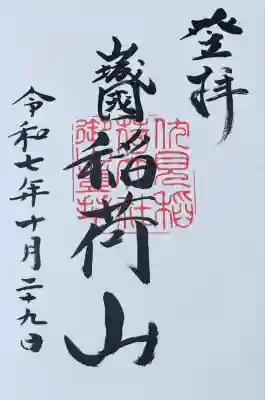 登拝
山城國
稲荷山
伏見稲
荷大社
令和七年十月二十九日